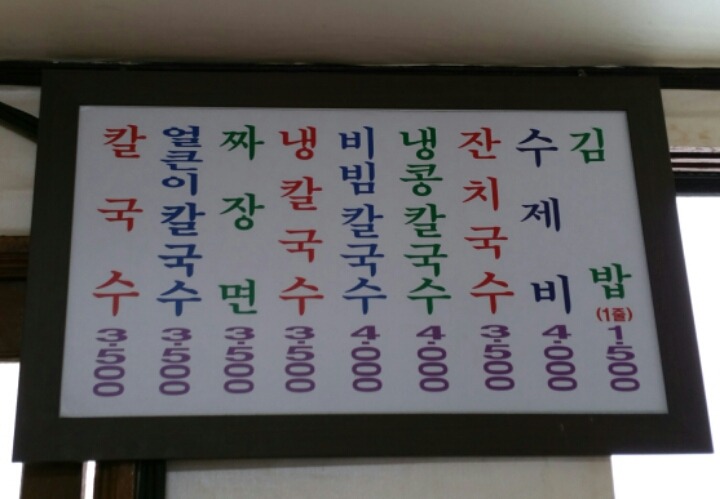 칼국수 3.500
얼큰이칼국수 3.500
짜장면 3.500
냉칼국수 3.500
비빔칼국수 4.000
냉콩칼국수 4.000
잔치국수 3.500
수제비 4.000
김밥 (1줄) 1.500